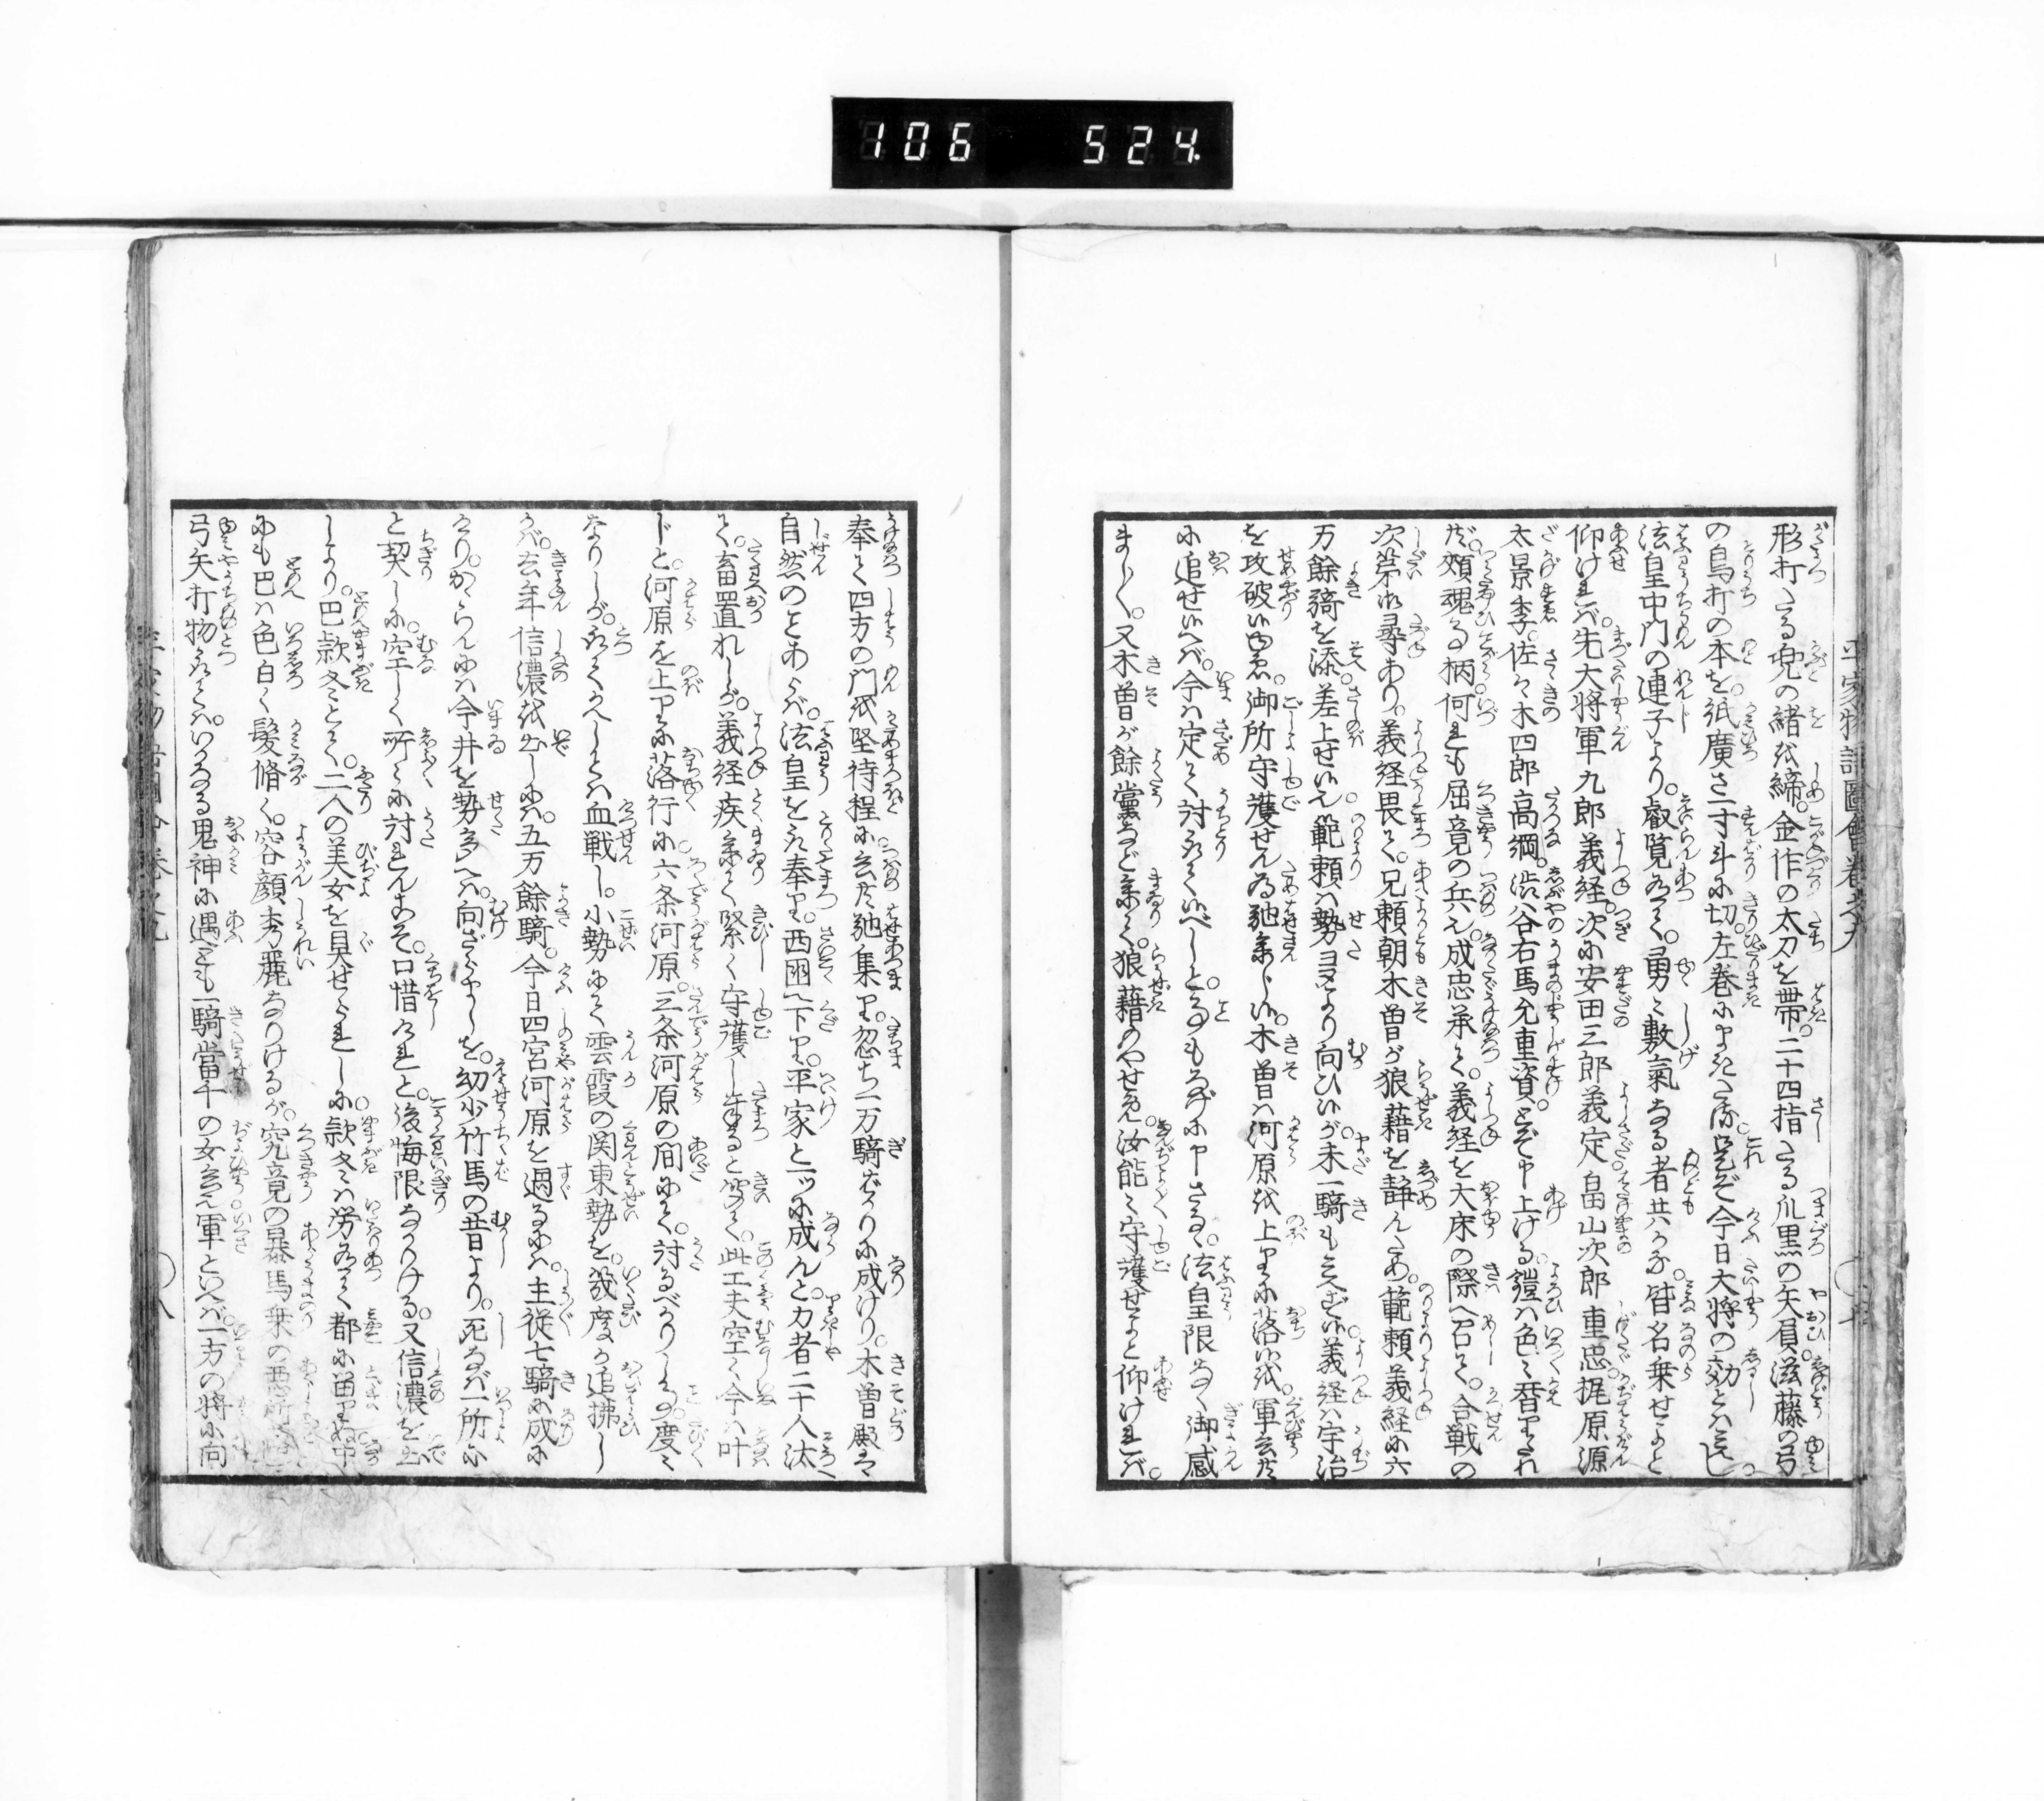 106 524
平家物語圖會卷之九
形打たる兜の緒を締。金作の太刀を帶。二十四指たる爪黒の矢負。滋藤の弓
の鳥打の本を。紙廣さ一寸斗に切。左巻にまきたる。是ぞ今日大将の効とは見えし。
法皇中門の連子より。叡覧有て。勇々敷氣なる者共かな。皆名乗せよと
仰ければ。先大将軍九郎義経。次に安田三郎義定。畠山次郎重忠。梶原源
太景季。佐々木四郎高綱。渋谷右馬允重資。とぞ申上ける。鎧は色々替りたれ
ど。頬魂る柄何れも屈竟の兵也。成忠承て。義経を大床の際へ召て。合戦の
次第御尋あり。義経畏て。兄頼朝木曽が狼藉を静んため。範頼義経に六
万餘騎を添。差上せ候也。範頼は勢ヨより向ひ候が。未一騎も見えず候。義経は宇治
を攻破候ゆゑ。御所守護せん為馳参じ候。木曽は河原を上りに落候を。軍兵共
に追せ候へば。今は定て討取て候べしと。事もなげに申さる。法皇限なく御感
まし〳〵。又木曽が餘黨など参て。狼藉のやせむ。汝能々守護せよと仰ければ。
奉て四方の門を堅待程に。兵共馳集り。忽ち一万騎ばかりに成けり。木曽殿は
自然のことあらば。法皇を取奉り。西國へ下り。平家と一ツに成んと。力者二十人汰
て。畜置れしが。義経疾参て緊く守護し奉ると聞て。此工夫空く今は叶
じと。河原を上りに落行に。六条河原。三条河原の間にて。討るべかりし事。度々
なりしが。取てかへしては血戦し。小勢にて雲霞の関東勢を。幾度か追拂し
かば。去年信濃を出しには。五万餘騎。今日四宮河原を過るには。主従七騎に成に
けり。かゝらんには今井を勢多へは。向ざらましを。幼少竹馬の昔より。死なば一所に
と契しに。空しく所々に討れんこそ。口惜けれと。後悔限なかりける。又信濃を出
しより。巴款冬とて。二人の美女を具せられしに。款冬は労有て都に留りぬ。中
にも巴は色白く髪脩く。容顔秀麗なりけるが。究竟の暴馬乗の悪所
弓矢打物取ては。いかなる鬼神に遇ども一騎當千の女なれば軍といへば。一方の将に向